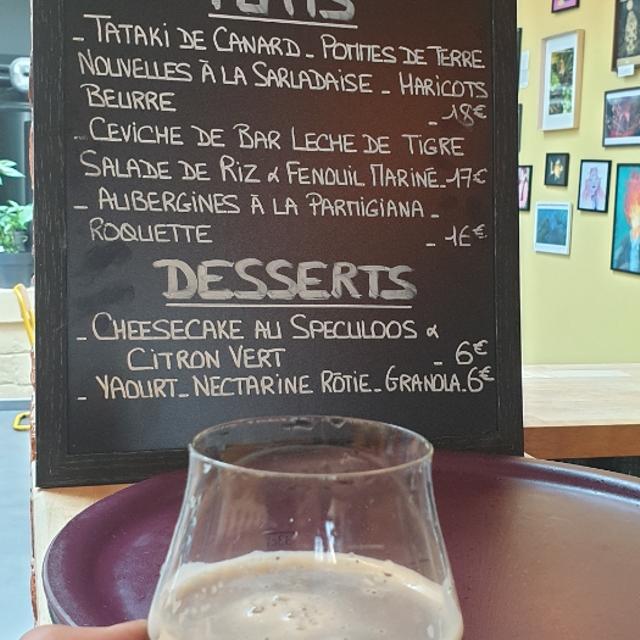 PLATS
- TATAKI DE CANARD - POMMES DE TERRE
NOUVELLES À LA SARLADAISE - HARICOTS
BEURRE - 18€
- CEVICHE DE BAR LECHE DE TIGRE
SALADE DE RIZ & FENOUIL MARINÉ - 17€
- AUBERGINES À LA PARMIGIANA -
ROQUETTE - 16€
DESSERTS
- CHEESECAKE AU SPECULOOS &
CITRON VERT - 6€
- YAOURT - NECTARINE RÔTIE - GRANOLA - 6€